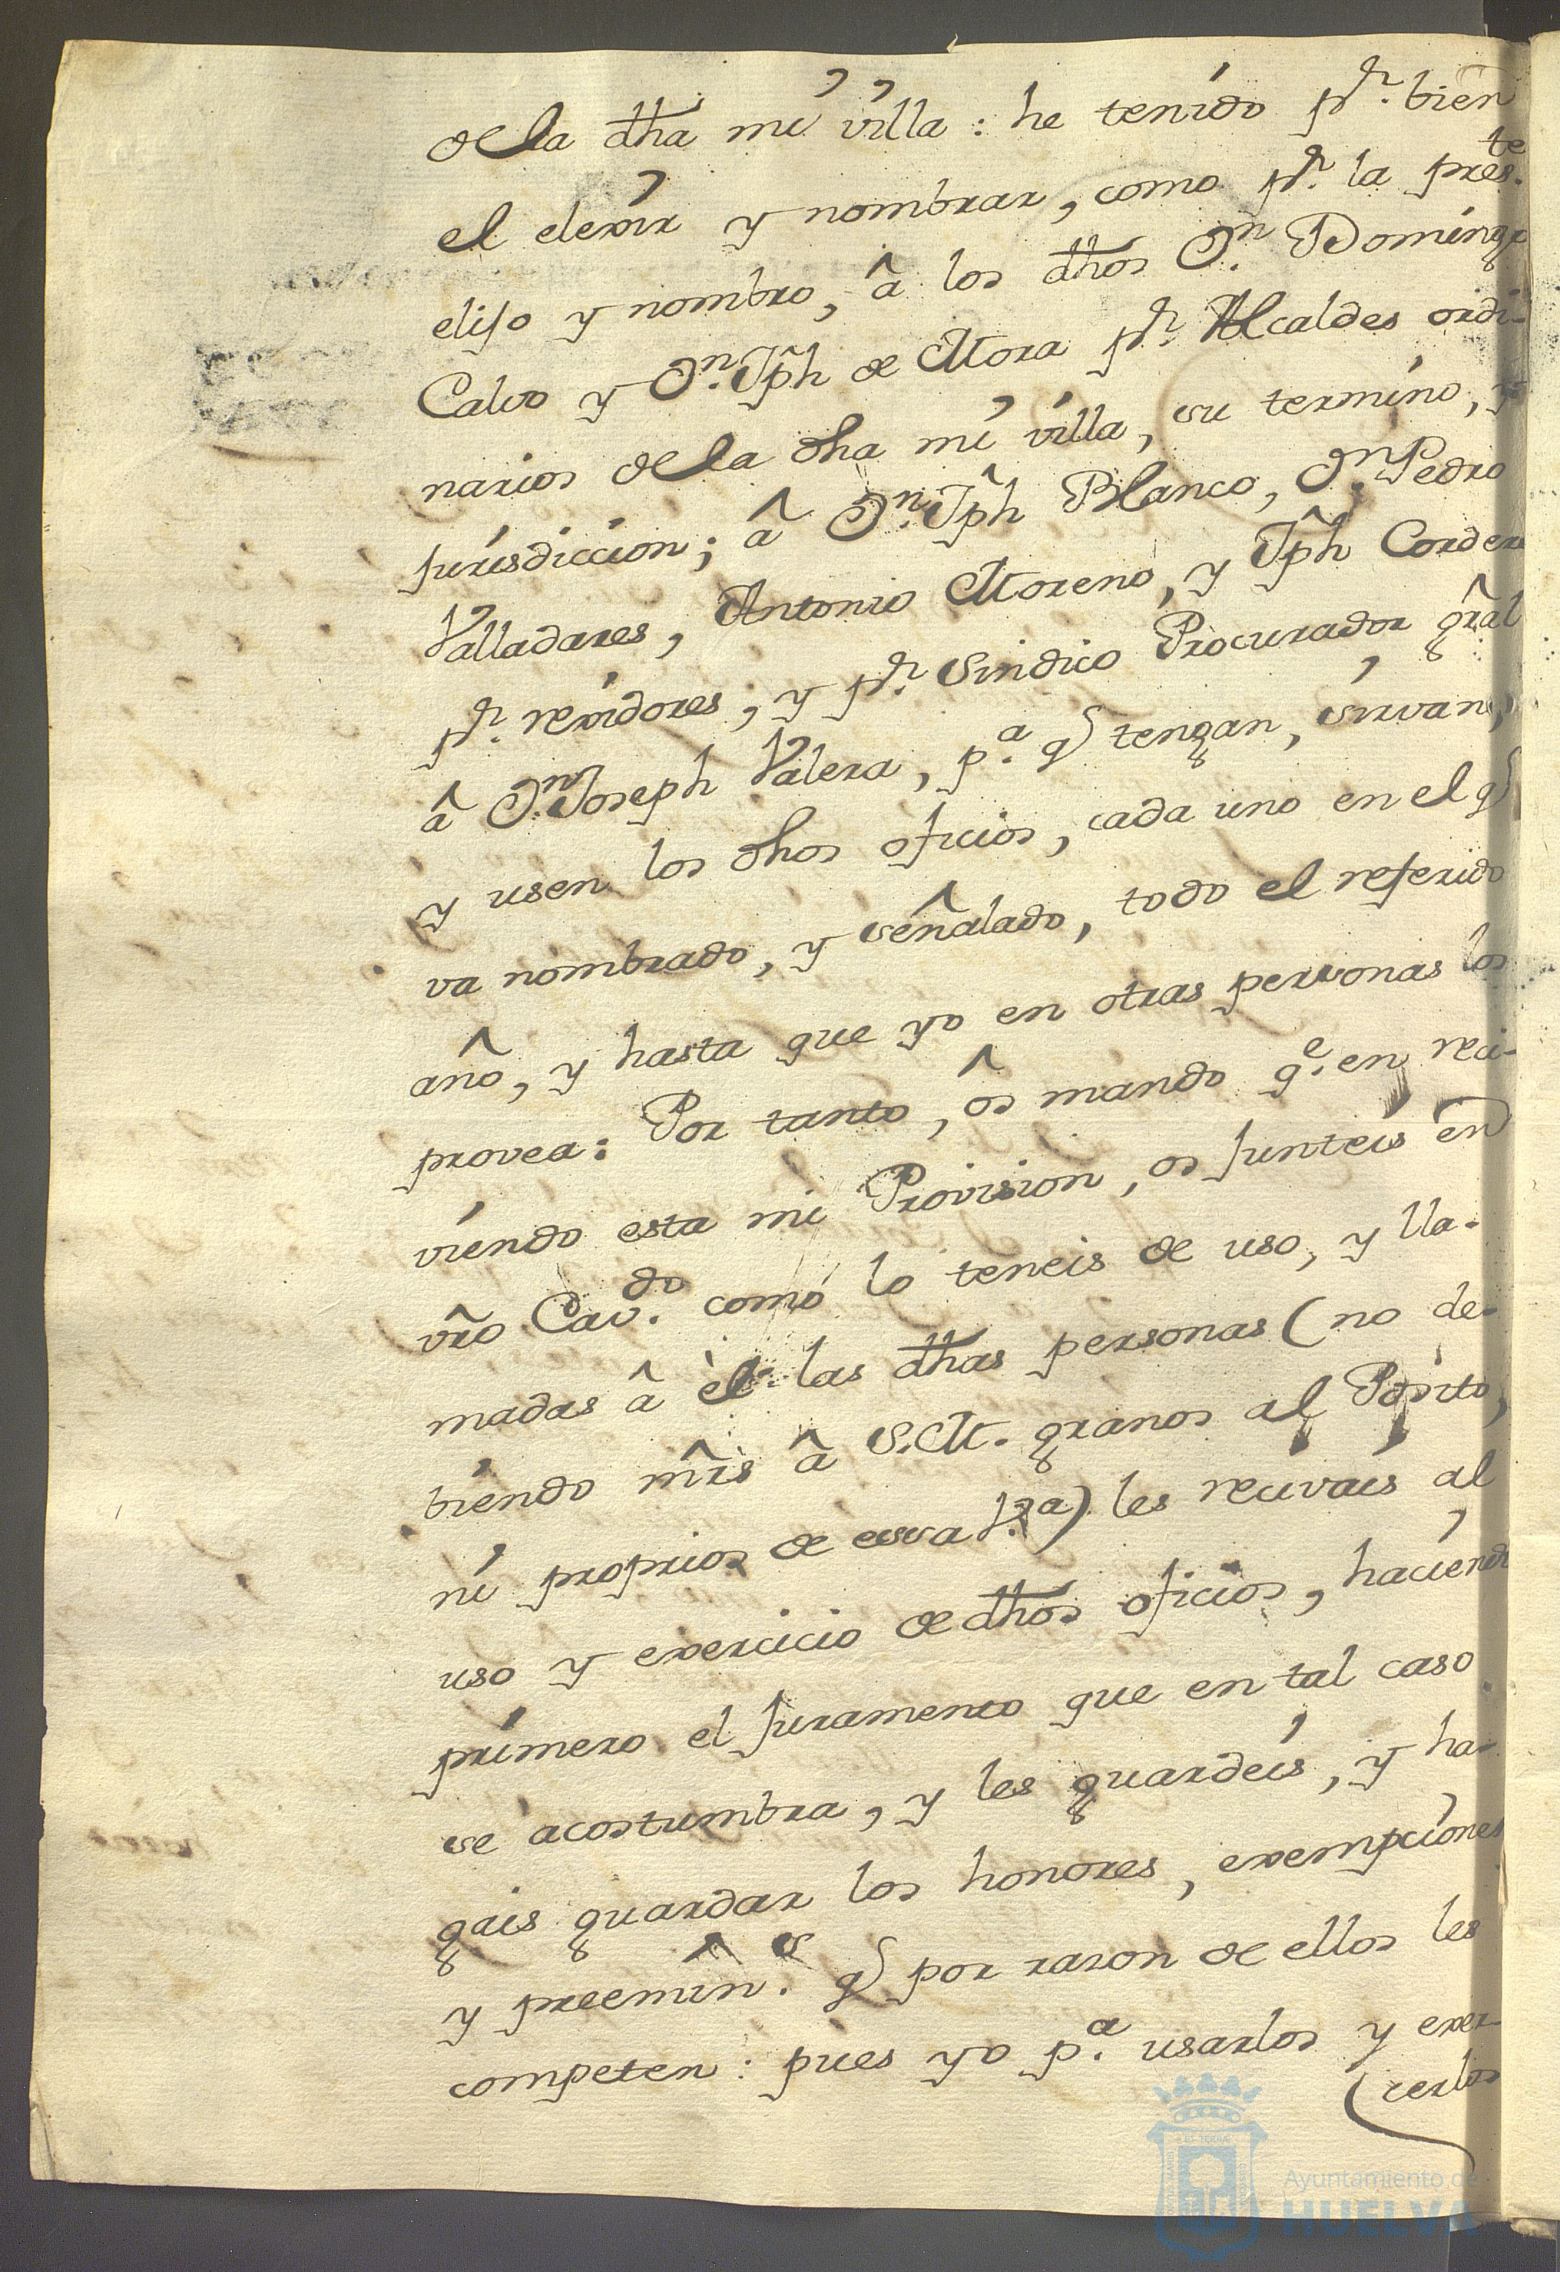 de la dha mi villa: he tenido pr. bien
el elexir y nombrar, como pr. la preste.
elijo y nombro, â los dhos Dn. Domingo
Calvo y Dn. Jph de Mora pr. Alcaldes ordi-
narios de la dha mi villa, su termino, y
jurisdiccion; â Dn. Jph Blanco, Dn. Pedro
Valladares, Antonio Moreno, y Jph Cordero
pr. rexidores; y pr. Sindico Procurador gral
â Dn. Joseph Valera, pa. q tengan, sirvan,
y usen los dhos oficios, cada uno en el q
va nombrado, y señalado, todo el referido
año, y hasta que yo en otras personas los
provea: Por tanto, os mando qe. en reci-
viendo esta mi Provision, os junteis en
vro Cavdo. como lo teneis de uso, y lla-
madas â èl las dhas personas (no de-
biendo mrs â S.M. granos al Posito,
ni proprios de essa va.) les recivais al
uso y exercicio de dhos oficios, haciendo
primero el juramento que en tal caso
se acostumbra, y les guardeis, y ha-
gais guardar los honores, exempciones
y preemins. q por razon de ellos les
competen: pues yo pa. usarlos y exer-
(cerlos
Ayuntamiento de
HUELVA